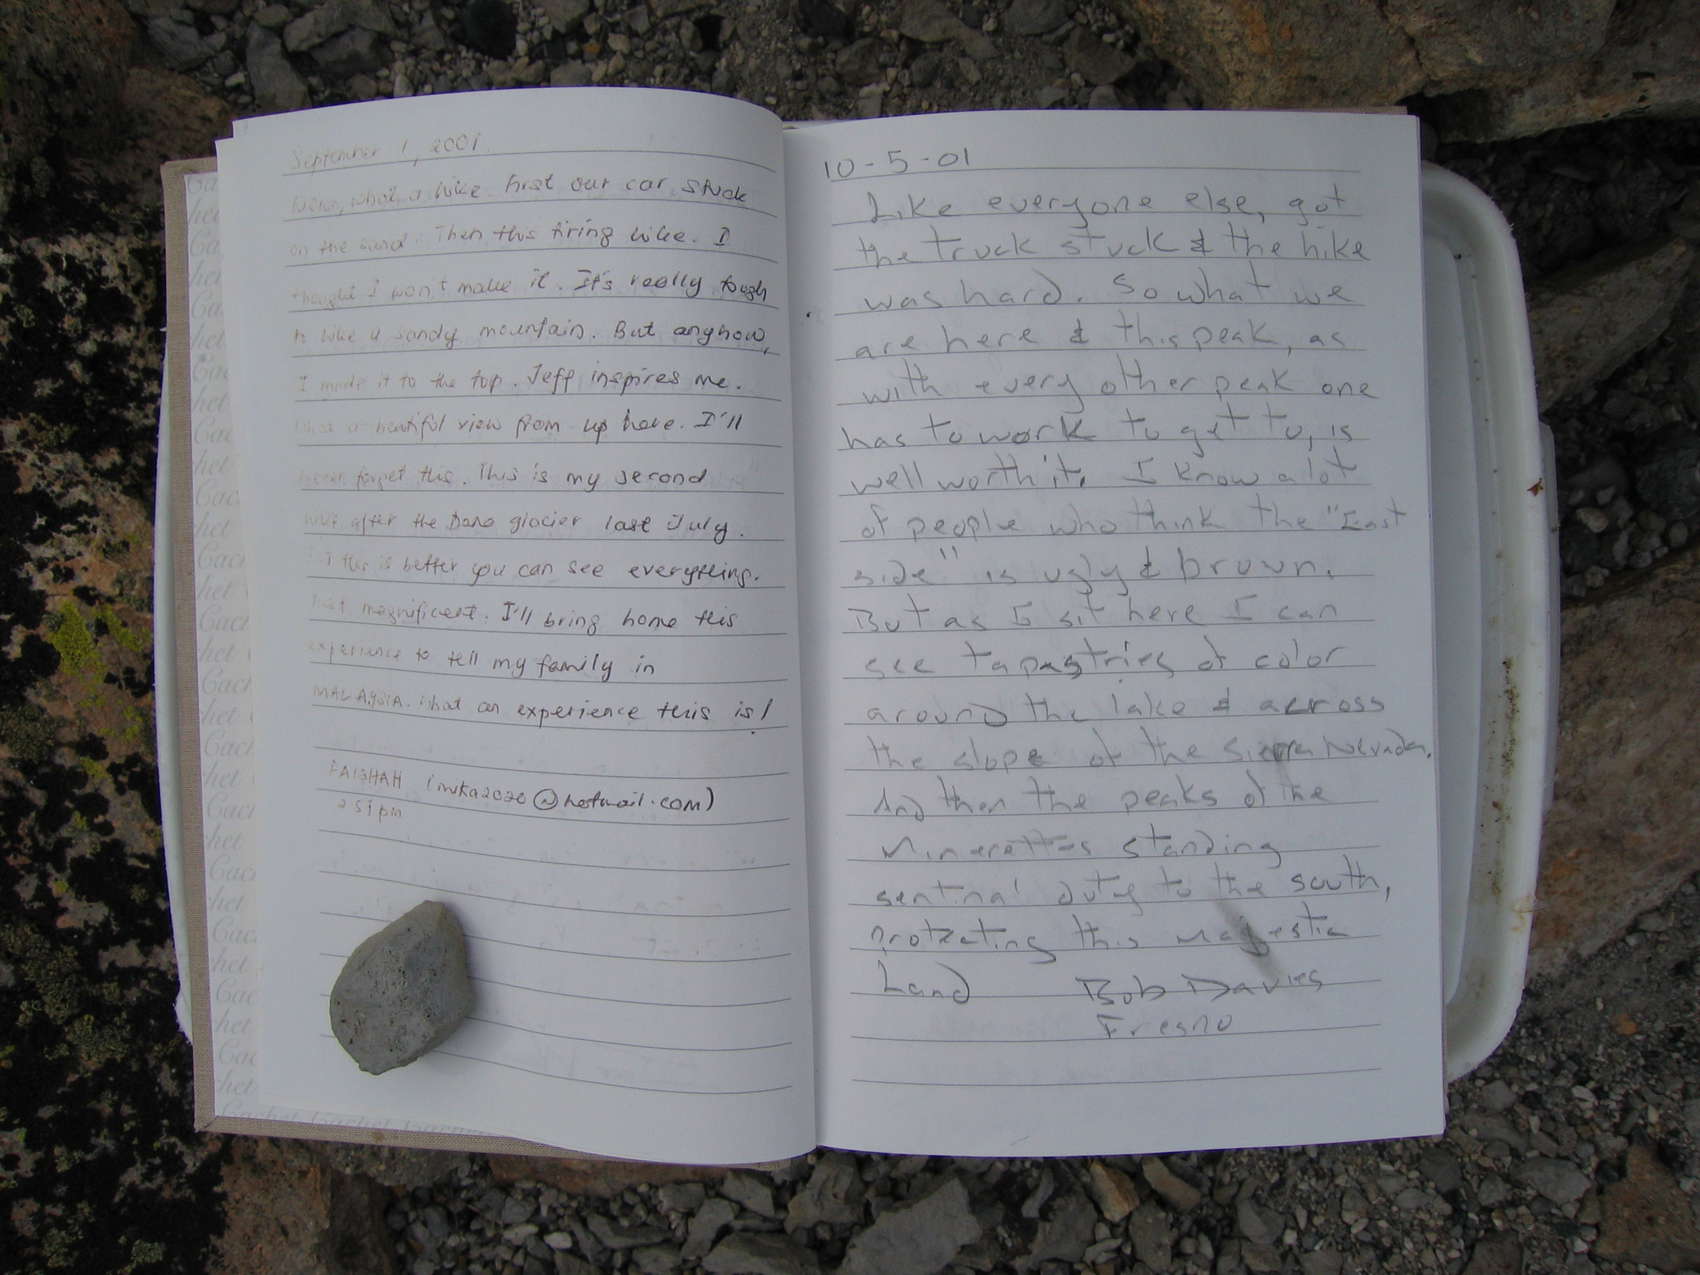 September 1, 2001.
what a hike. First our car stuck
on the sand. Then this tiring hike. I
thought I won't make it. It's really tough
to hike a sandy mountain. But anyhow,
I made it to the top. Jeff inspires me.
What a beautiful view from up here. I'll
never forget this. This is my second
after the Dana glacier last July.
this is better you can see everything.
magnificent. I'll bring home this
experience to tell my family in
MALAYSIA. What an experience this is!
FAIGHAH (muka2020@hotmail.com)
2 51 pm
10-5-01
Like everyone else, got
the truck stuck & the hike
was hard. So what we
are here & this peak, as
with every other peak one
has to work to get to, is
well worth it. I know a lot
of people who think the "East
side" is ugly & brown.
But as I sit here I can
see tapastries of color
around the lake & across
the slope of the Sierra Nevada.
And then the peaks of the
Minerettes standing
sentinal duty to the south,
protecting this majestic
Land Bob Davies
Fresno
Cachet